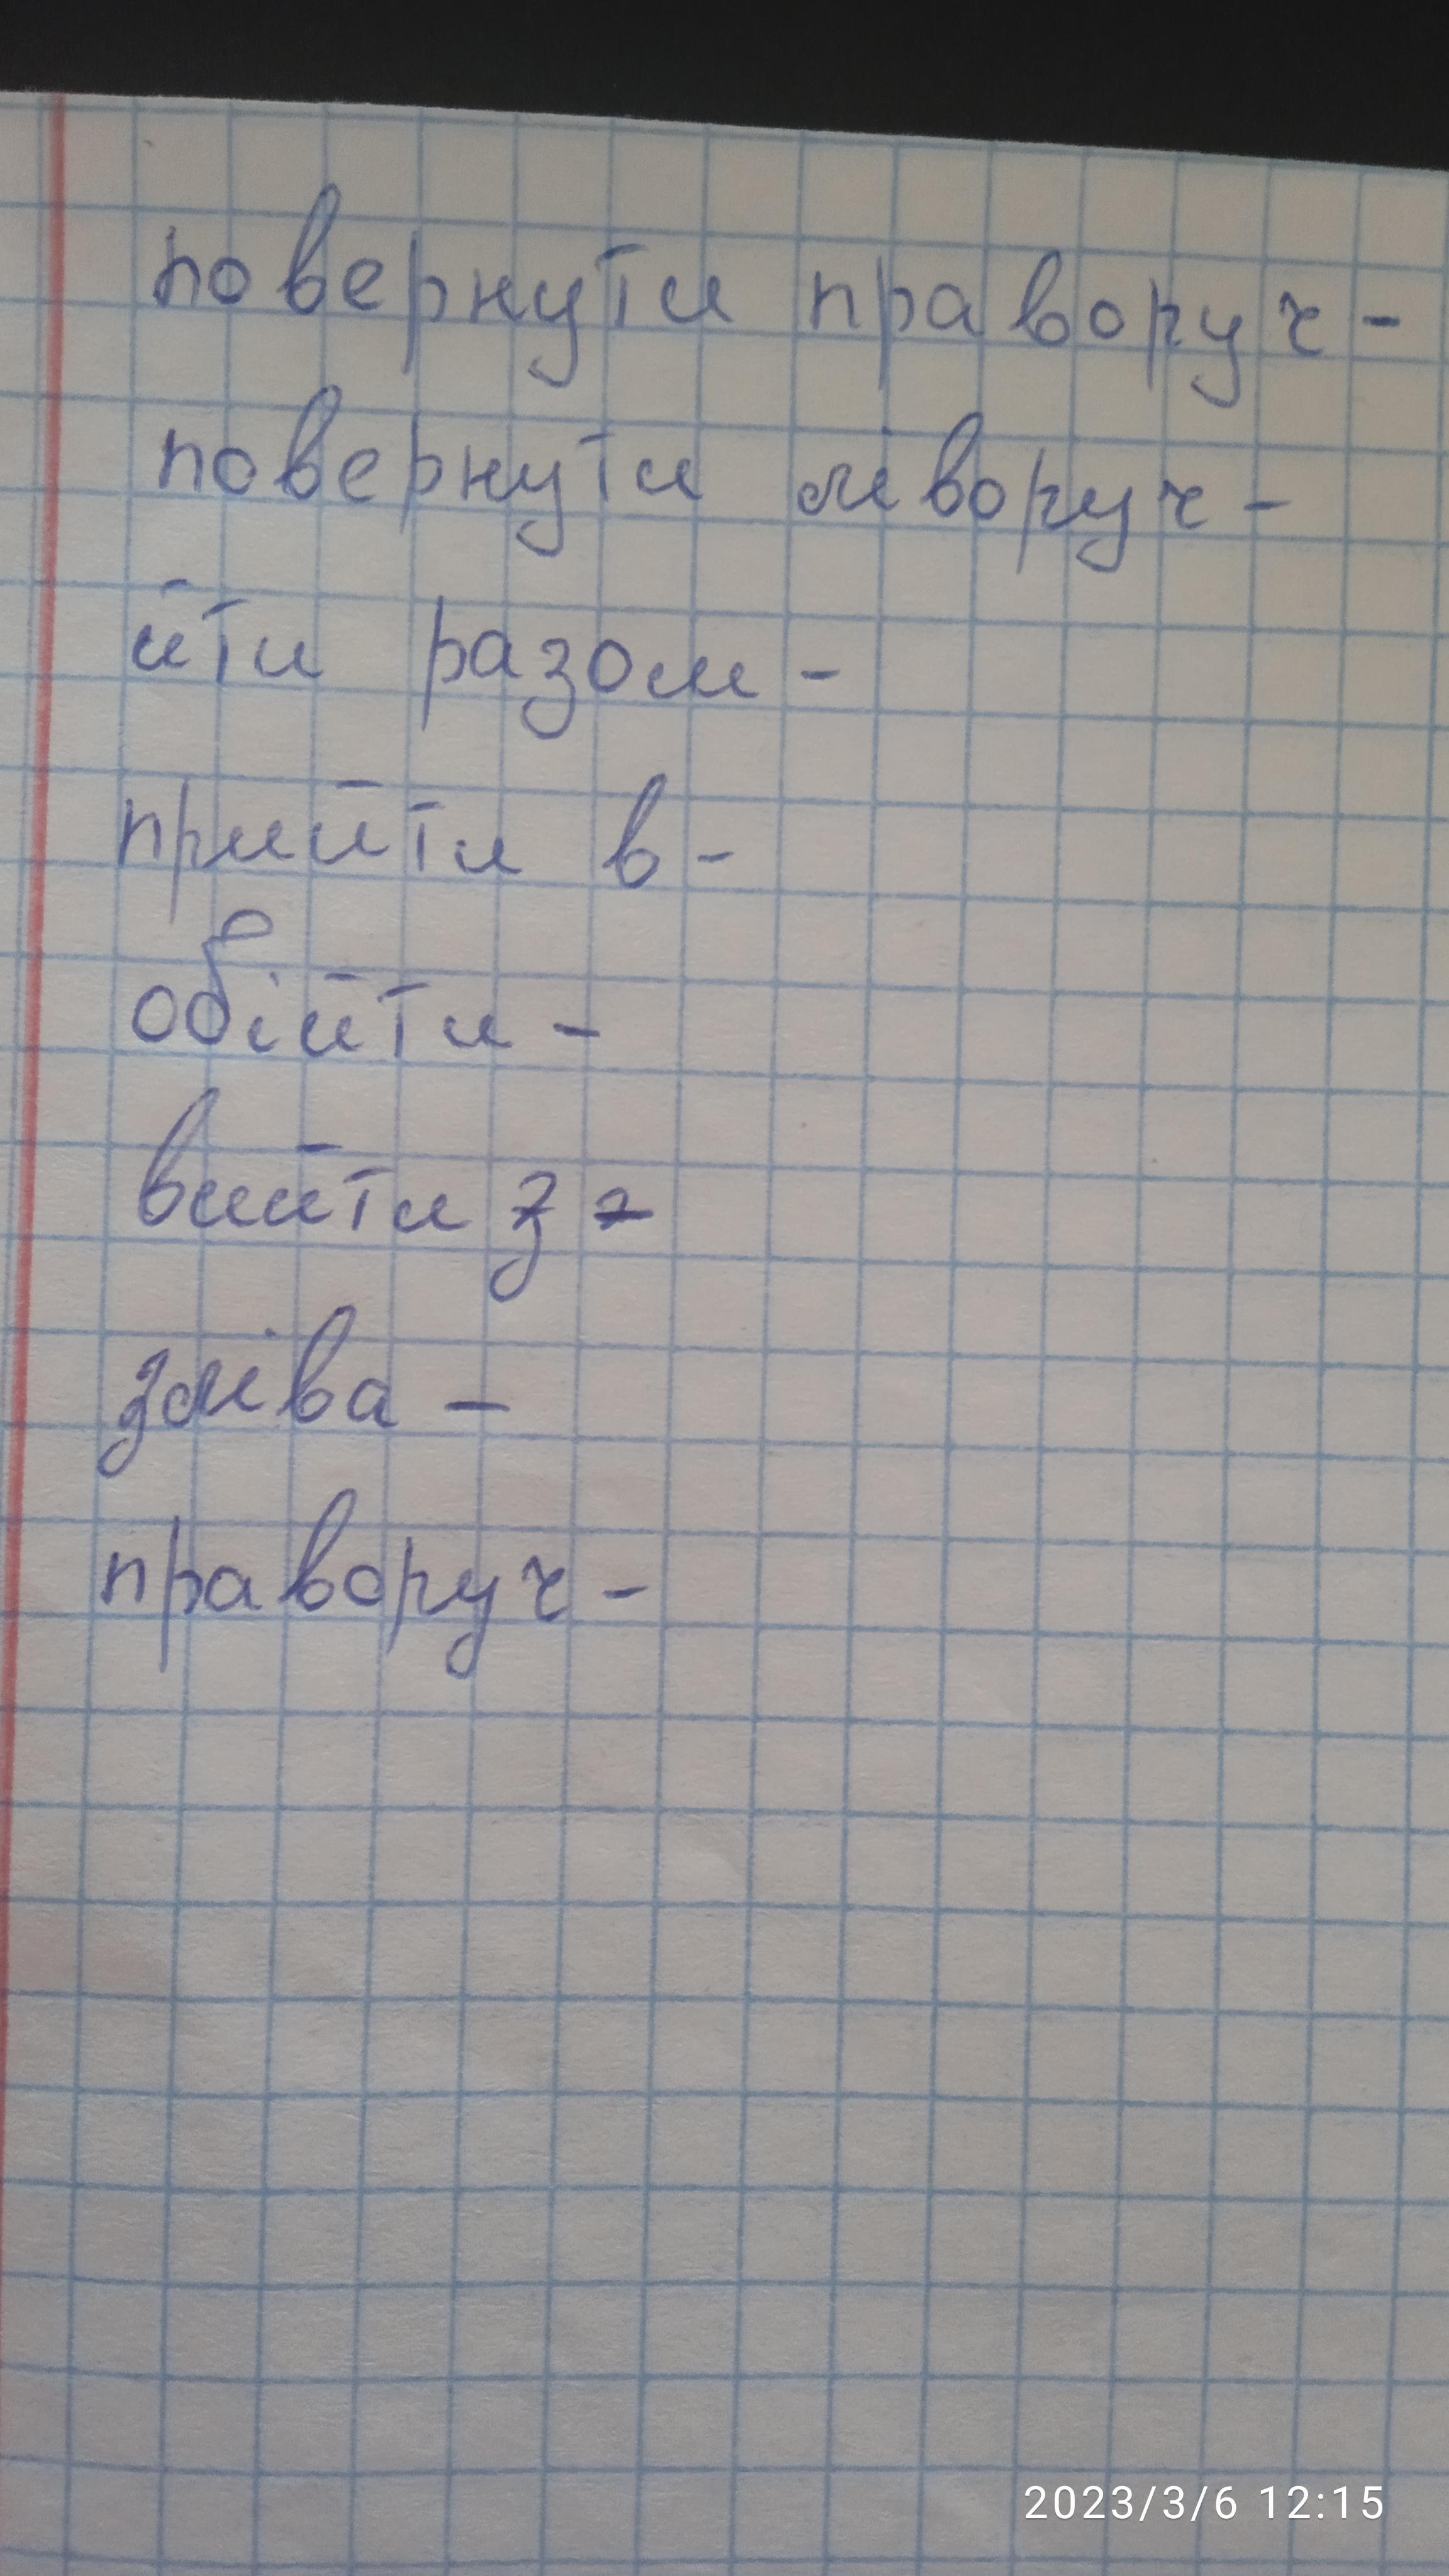 повернути праворуч -
повернути ліворуч -
йти разом -
прийти в -
обійти -
вийти з -
зліва -
праворуч -
2023/3/6 12:15